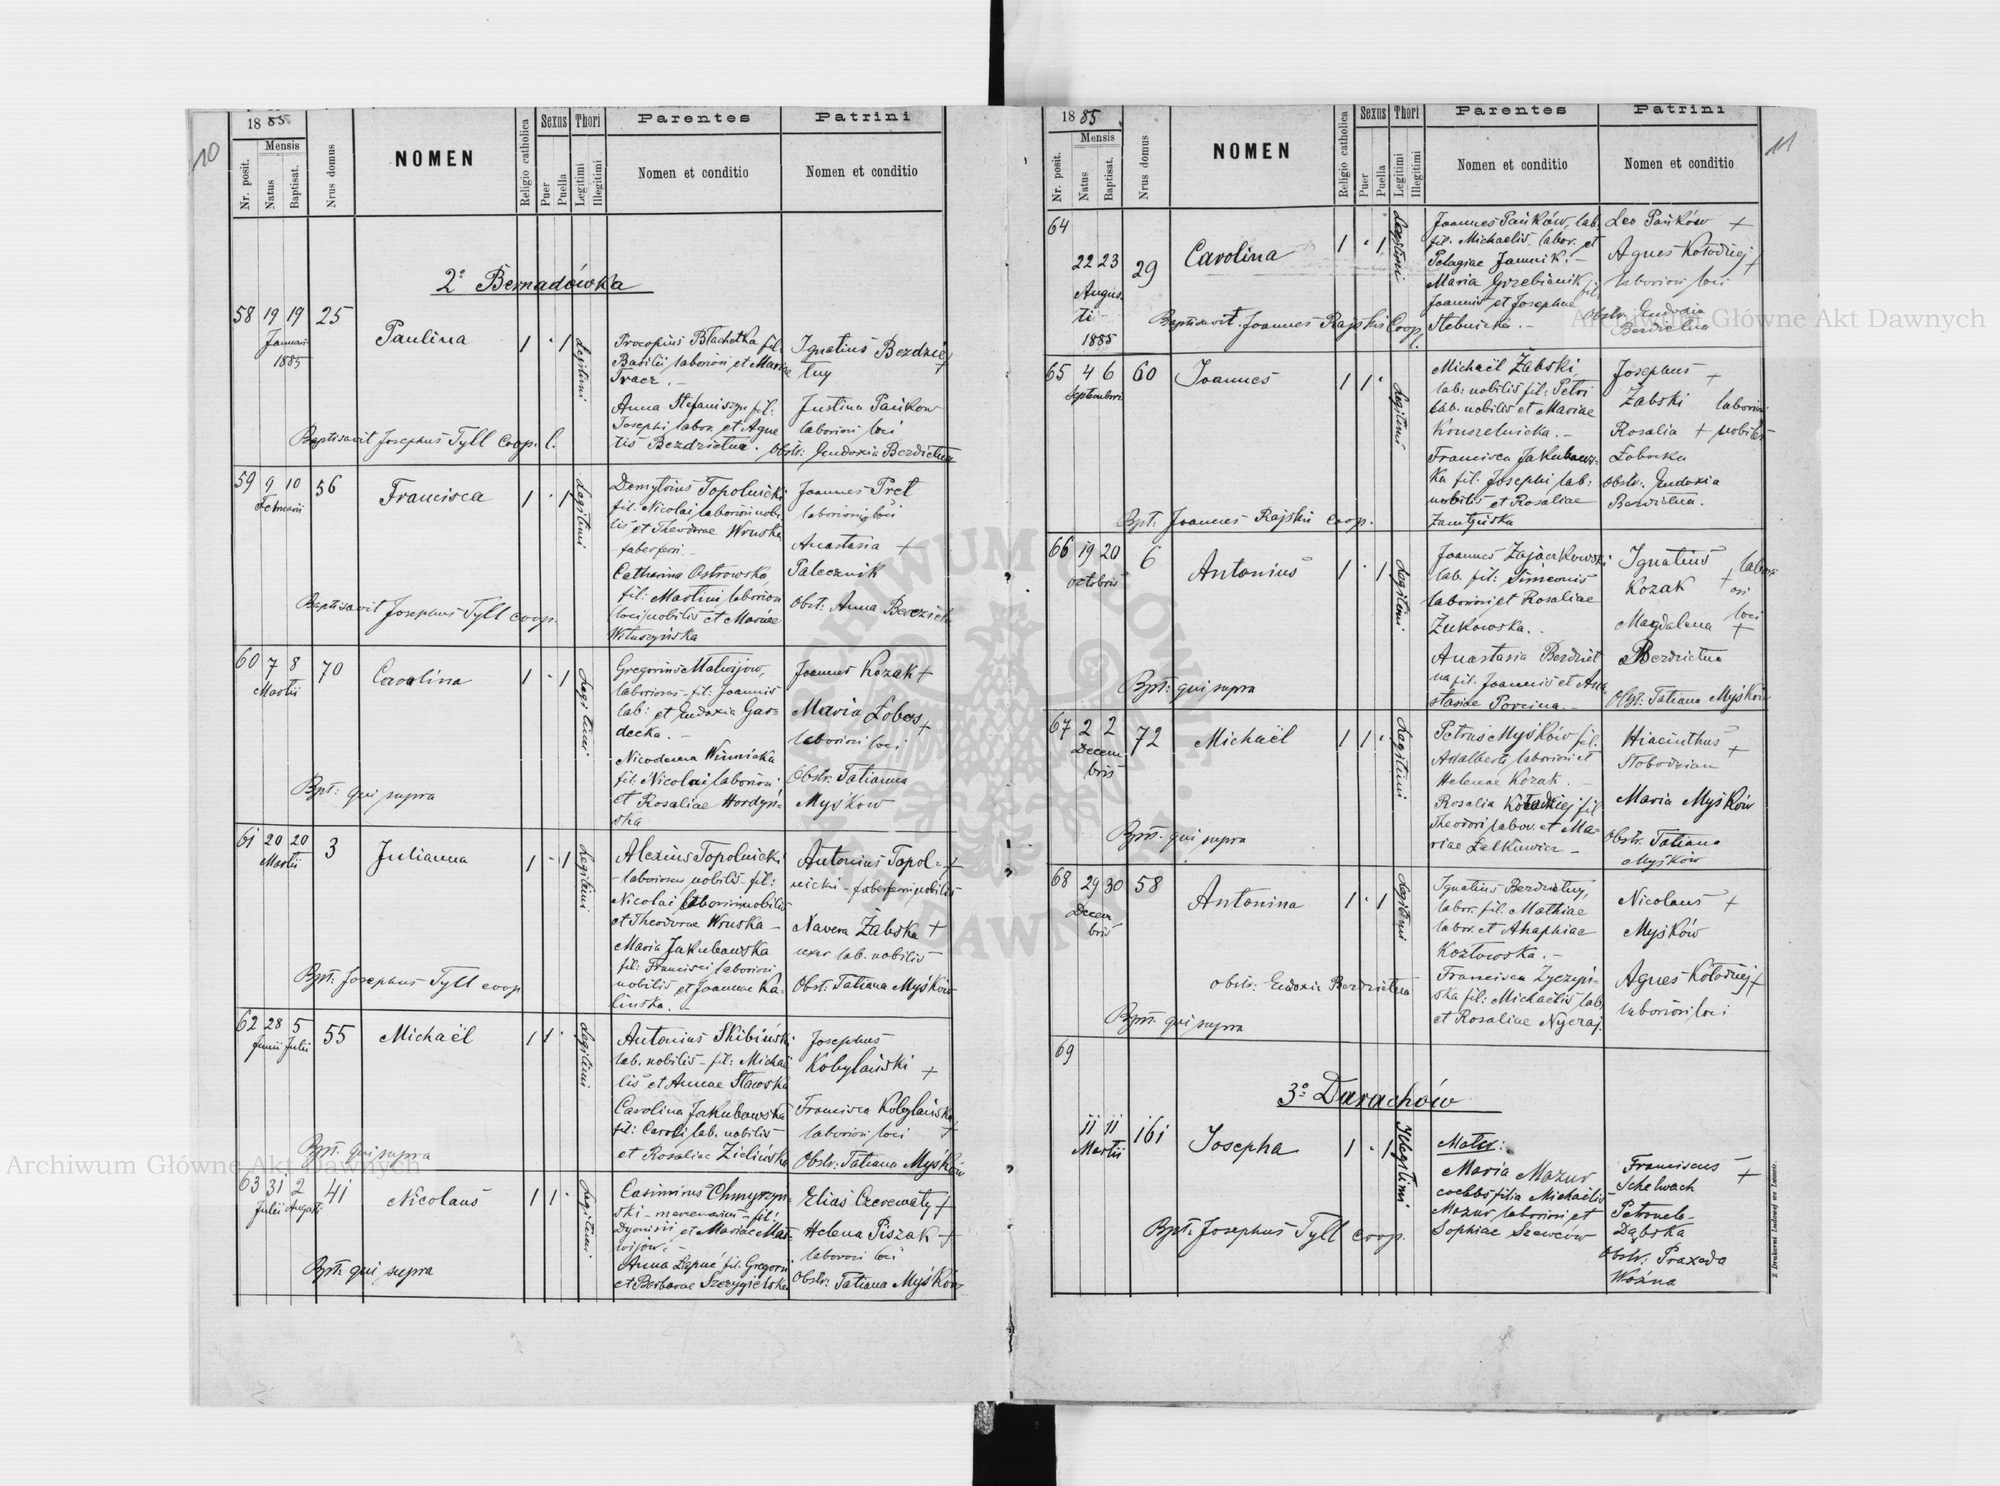 10
1885.
Nr. posit.
Mensis
Natus
Baptisat.
Nrus domus
NOMEN
Religio catholica
Sexus
Puer
Puella
Thori
Legitimi
Illegitimi
Parentes
Nomen et conditio
Patrini
Nomen et conditio
2º Bernadówka
58 19 19 25
Januarii
1885
Paulina
1 · 1
Legitimi
Procopius Blachetka fil.
Basilii laboriosi et Mariae
Tracz. -
Anna Stefaniszyn fil:
Josephi labor. et Agne
tis Bezdzietna.
Ignatius Bezdzie
tny
Justina Pańkow
laboriosi loci
Obstr: Eudoxia Bezdietna
Baptisavit Josephus Tyll Coop. l.
59 9 10 56
Februarii
Francisca
1 · 1
Legitimi
Demytrius Topolnicki
fil: Nicolai laboriosi nobi
lis et Theodorae Wonska
faberferri -
Catharina Ostrowska,
fil: Martini laboriosi
loci nobilis et Mariae
Joannes Pret
laboriosi loci
Anastasia +
Palecznik
Obst: Anna
Baptisavit Josephus Tyll coop.
60 7 8 70
Martii
Carolina
1 · 1
Legitimi
Gregorius Matwijow,
laboriosus - fil: Joannis
lab: et Eudoxia Gar-
decka. -
Nicodema Winnicka
fil: Nicolai laboriosi
et Rosaliae Hordyń-
ska
Joannes Kozak +
Maria Łobos +
laboriosi loci
Obstr: Tatianna
Myśkow
Bpt: qui supra
61 20 20 3
Martii
Julianna
1 · 1
Legitimi
Alexius Topolnicki
- laboriosus nobilis - fil:
Nicolai laboriosi nobilis
et Theodorae Wonska -
Maria Jakubowska
fil: Francisci laboriosi
nobilis et Joannae Ka-
linska. -
Antonius Topol- +
nicki - faberferri nobilis
Xavera Żabska +
uxor lab. nobilis -
Obst: Tatiana Myśków
Bpt: Josephus Tyll coop
62 28 5 55
Junii Julii
Michaël
1 1 ·
Legitimi
Antonius Skibiński
lab. nobilis - fil: Michae
lis et Annae Stawska
Carolina Jakubowska
fil: Caroli lab. nobilis -
et Rosaliae Zielińska
Josephus
Kobylański +
Francisca Kobylańska +
laboriosi loci
Obstr: Tatiana Myśków
Bpt: qui supra
63 31 2 41
Julii Augusti
Nicolaus
1 1 ·
Legitimi
Casimirus Chmyrzyn-
ski - mercenarius - fil:
Dyonisii et Mariae Mat-
wijow. -
Anna Łapuć fil. Gregorii
et Barbarae Szczygielska
Elias Czerewaty +
Helena Piszak +
laboriosi loci
Obstr: Tatiana Myśków
Bpt: qui supra
11
1885.
Nr. posit.
Mensis
Natus
Baptisat.
Nrus domus
NOMEN
Religio catholica
Sexus
Puer
Puella
Thori
Legitimi
Illegitimi
Parentes
Nomen et conditio
Patrini
Nomen et conditio
64
22 23 29
Augus-
ti
1885
Carolina
1 · 1
Legitimi
Joannes Pańków, lab.
fil. Michaelis, labor. et
Pelagiae Jamnik. -
Maria Grzebianik fil.
Joannis et Josephae
Stebnicka. -
Leo Pańków +
Agnes Kołodziej +
laboriosi loci
Obstr. Eudoxia
Bezdietna
Baptisavit Joannes Rajski Coop. l.
65 4 6 60
Septembris
Joannes
1 1 ·
Legitimi
Michaël Żabski,
lab. nobilis fil: Petri
lab. nobilis et Mariae
Konszelnicka. -
Francisca Jakubows-
ka fil. Josephi lab:
nobilis et Rosaliae
Josephus +
Żabski laboriosi
Rosalia + nobiles
Łobocka
Obstr. Eudoxia
Bezdietna.
Bpt: Joannes Rajski coop.
66 19 20 6
Octobris
Antonius
1 · 1
Legitimi
Joannes Zajaczkowski
lab. fil: Simeonis
laboriosi et Rosaliae
Żukowska. -
Anastasia Bezdziet
na fil. Joannis et Ana
stasiae Porcina. -
Ignatius labori
Kozak + osi
Magdalena loci +
Bezdzietna
Obst: Tatiana Myśków
Bpt: qui supra
67 2 2 72
Decem
bris
Michaël
1 1 ·
Legitimi
Petrus Myśków fil.
Adalberti laboriosi et
Helenae Kozak. -
Rosalia Kołodziej fil
Theodori labor. et Ma-
riae Łalkiewicz -
Hiacinthus +
Słobodzian
Maria Myśków
Obstr: Tatiana
Myśków
Bpt: qui supra
68 29 30 58
Decem
bris
Antonina
1 · 1
Legitimi
Ignatius Bezdzietny,
labor. fil. Mathiae
labor. et Ahaphiae
Kozłowska. -
Francisca Życzyń-
ska fil: Michaelis lab.
et Rosaliae Nyczaj.
Nicolaus +
Myśków
Agnes Kołodziej +
laboriosi loci
obstr: Eudoxia Bezdzietna
Bpt: qui supra
69
3º Darachów
11 11 161
Martii
Josepha
1 · 1
Illegitimi
Mater:
Maria Mazur
coelebs filia Michaelis
Mazur laboriosi et
Sophiae Szewców
Franciscus +
Schelwach
Petronela
Dąbska
Obstr: Praxeda
Woźna
Bpt: Josephus Tyll coop.
Z Drukarni Ludowej we Lwowie.
Archiwum Główne Akt Dawnych
Archiwum Główne Akt Dawnych
ARCHIWUM GŁÓWNE AKT DAWNYCH